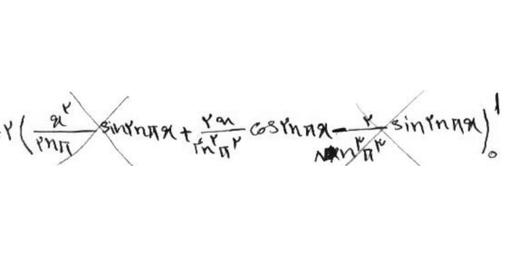 ۲(x^۲/۲nπ sin۲nπx + ۲x/۴n^۲π^۲ cos۲nπx - ۲/n^۳π^۳ sin۲nπx)^۱_۰